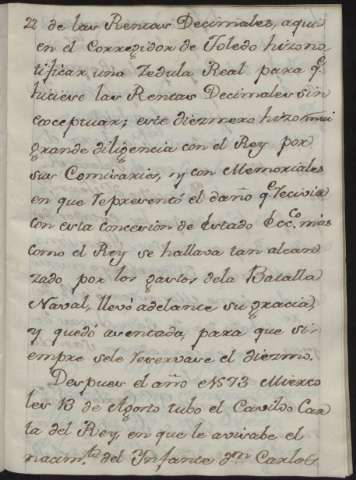 22 de las Rentas Decimales, a quien
en el Corregidor de Toledo hizo no
tificar una Zedula Real para q.e
hiciese las Rentas Decimales sin
exceptuar; este diezmero hizo mui
grande diligencia con el Rey por
sus Comisarios, y con Memoriales
en que representó el daño q.e recivia
con esta concesion de Estado Ecc.co mas
como el Rey se hallava tan alcan
zado por los gastos de la Batalla
Naval, llevó adelante su gracia,
y quedó asentada, para que si
empre se le reservase el diezmo.
Despues el año e 1573 Mierco
les 13 de Agosto tubo el Cavildo Car
ta del Rey, en que le avisabe el
nacim.to del Infante D.n Carlos